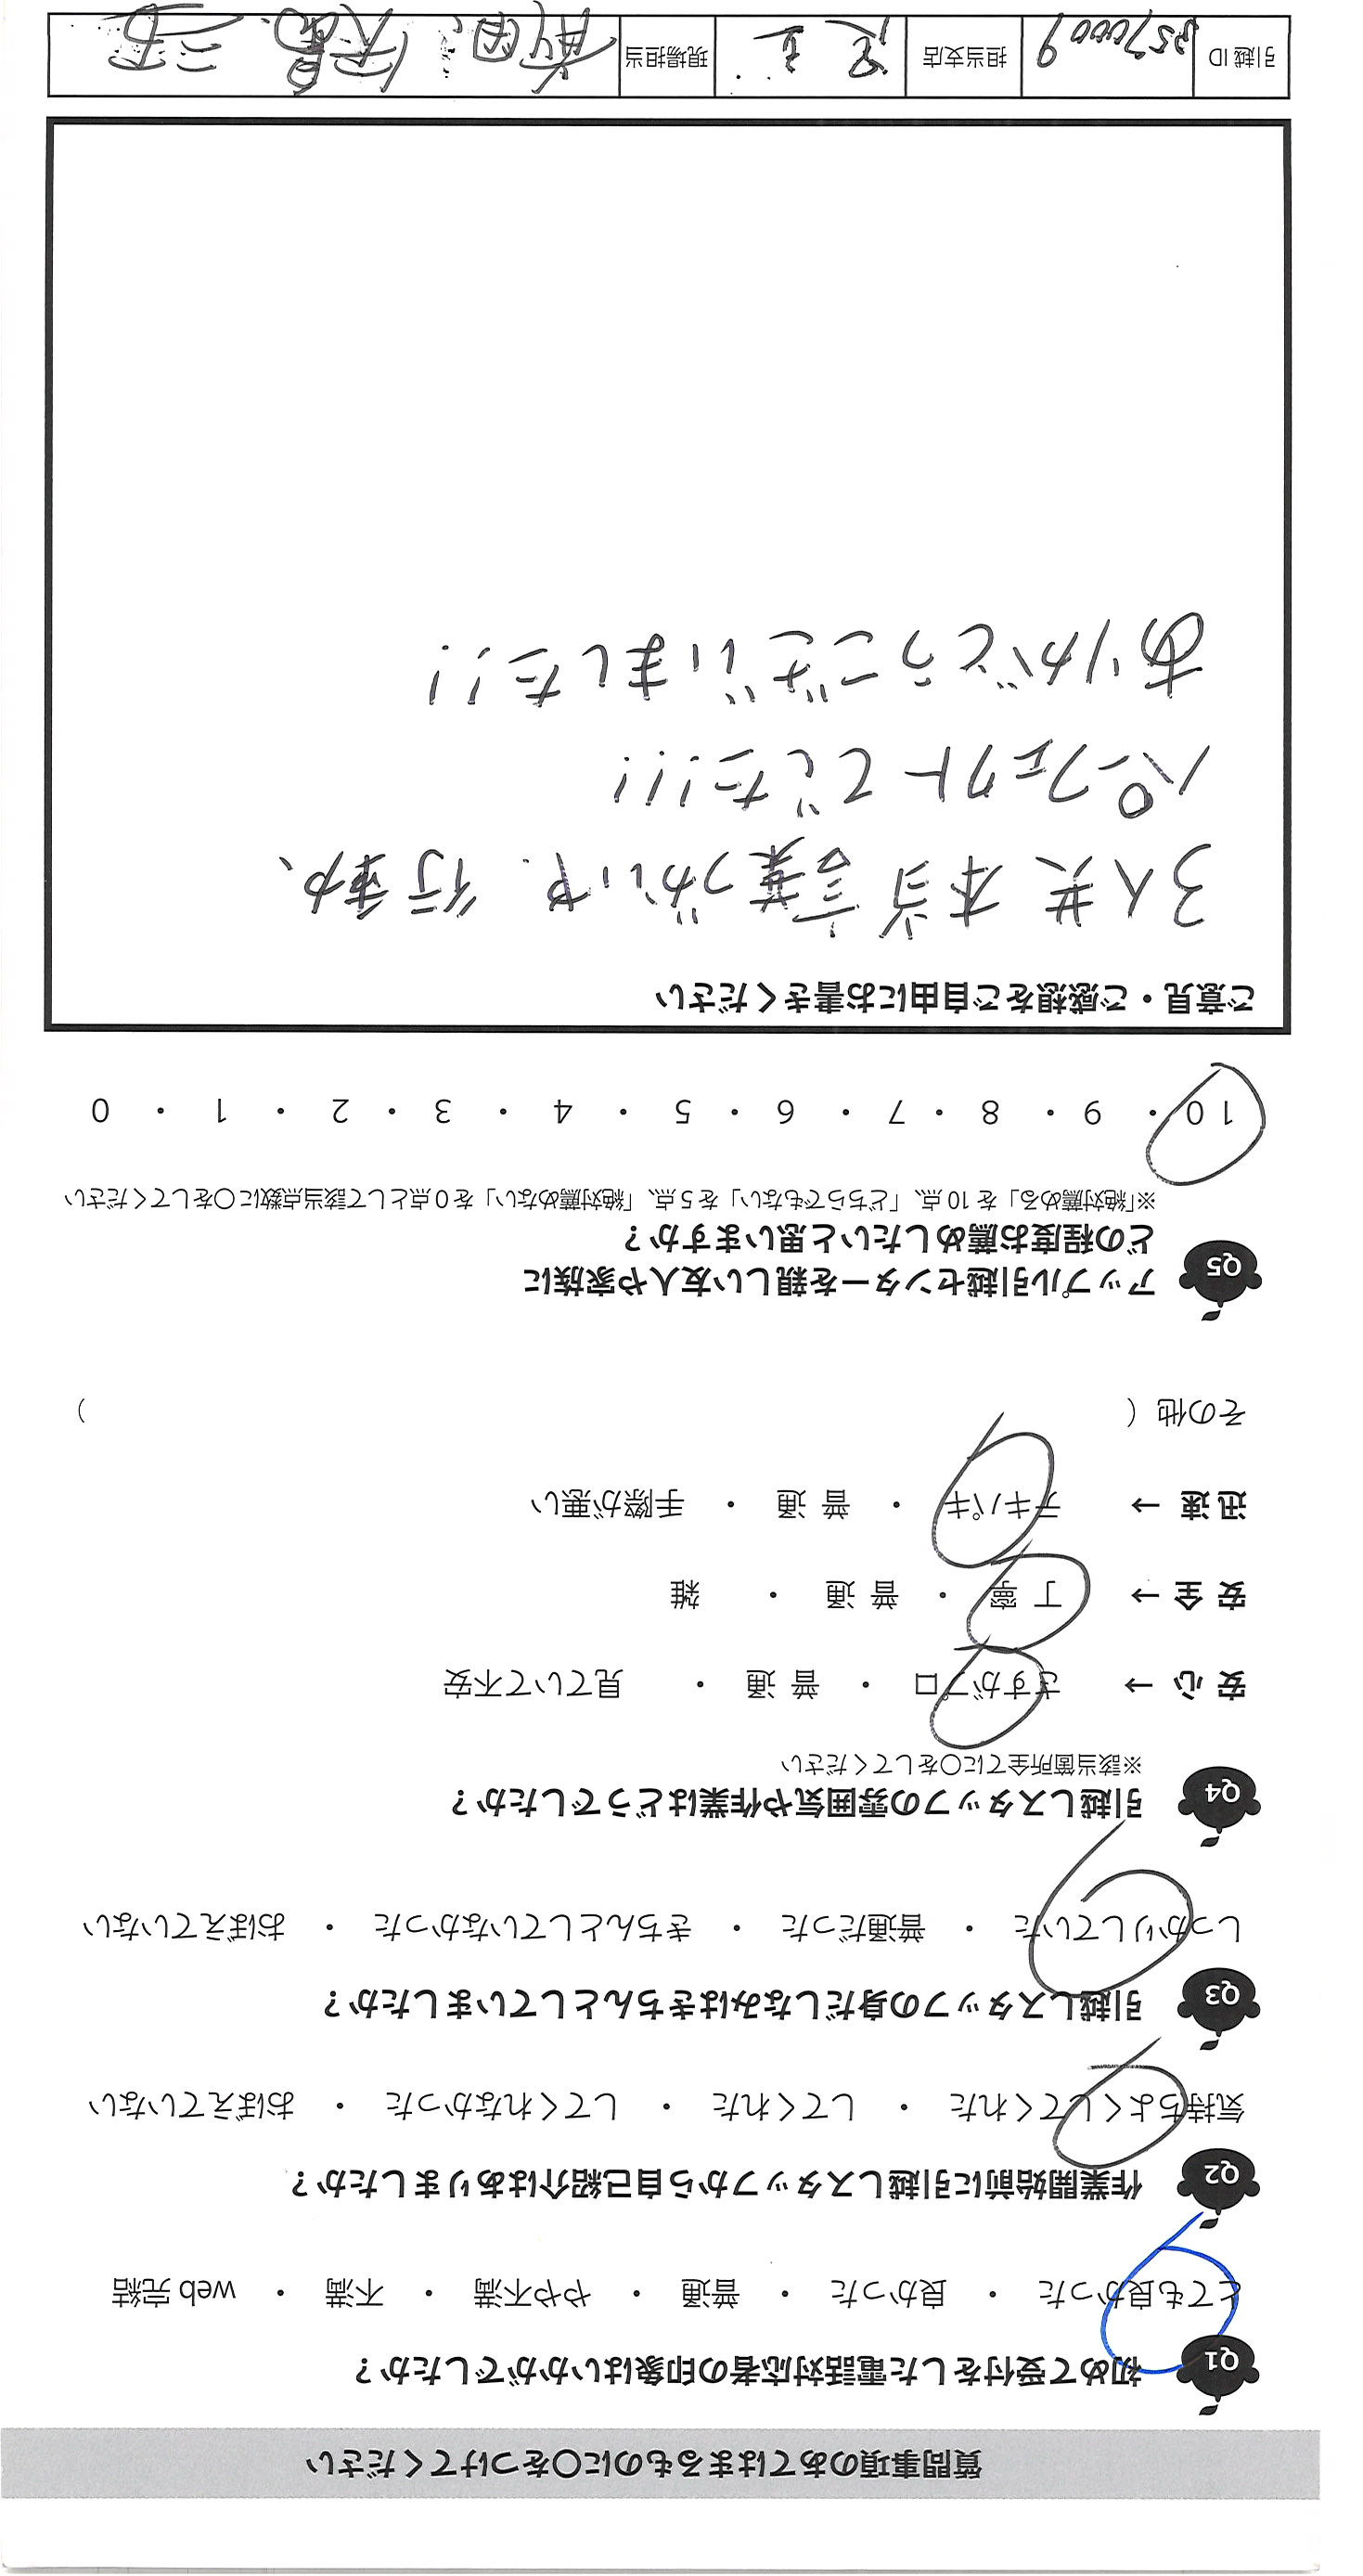 質問事項のあてはまるものに〇をつけてください
Q1 初めて受付をした電話対応者の印象はいかがでしたか？
とても良かった ・ 良かった ・ 普通 ・ やや不満 ・ 不満 ・ web 完結
Q2 作業開始前に引越しスタッフから自己紹介はありましたか？
気持ちよくしてくれた ・ してくれた ・ してくれなかった ・ おぼえていない
Q3 引越しスタッフの身だしなみはきちんとしていましたか？
しっかりしていた ・ 普通だった ・ きちんとしていなかった ・ おぼえていない
Q4 引越しスタッフの雰囲気や作業はどうでしたか？
※該当箇所全てに〇をしてください
安 心 → さすがプロ ・ 普 通 ・ 見ていて不安
安 全 → 丁 寧 ・ 普 通 ・ 雑
迅 速 → テキパキ ・ 普 通 ・ 手際が悪い
その他（ ）
Q5 アップル引越センターを親しい友人や家族に
どの程度お薦めしたいと思いますか？
※「絶対薦める」を 10 点、「どちらでもない」を 5 点、「絶対薦めない」を 0 点として該当点数に〇をしてください
10 ・ 9 ・ 8 ・ 7 ・ 6 ・ 5 ・ 4 ・ 3 ・ 2 ・ 1 ・ 0
ご意見・ご感想をご自由にお書きください
3人共 本当 言葉づかいや、行動
パーフェクトでした!!!
ありがとうございました!!
引越 ID 担当支店 現場担当